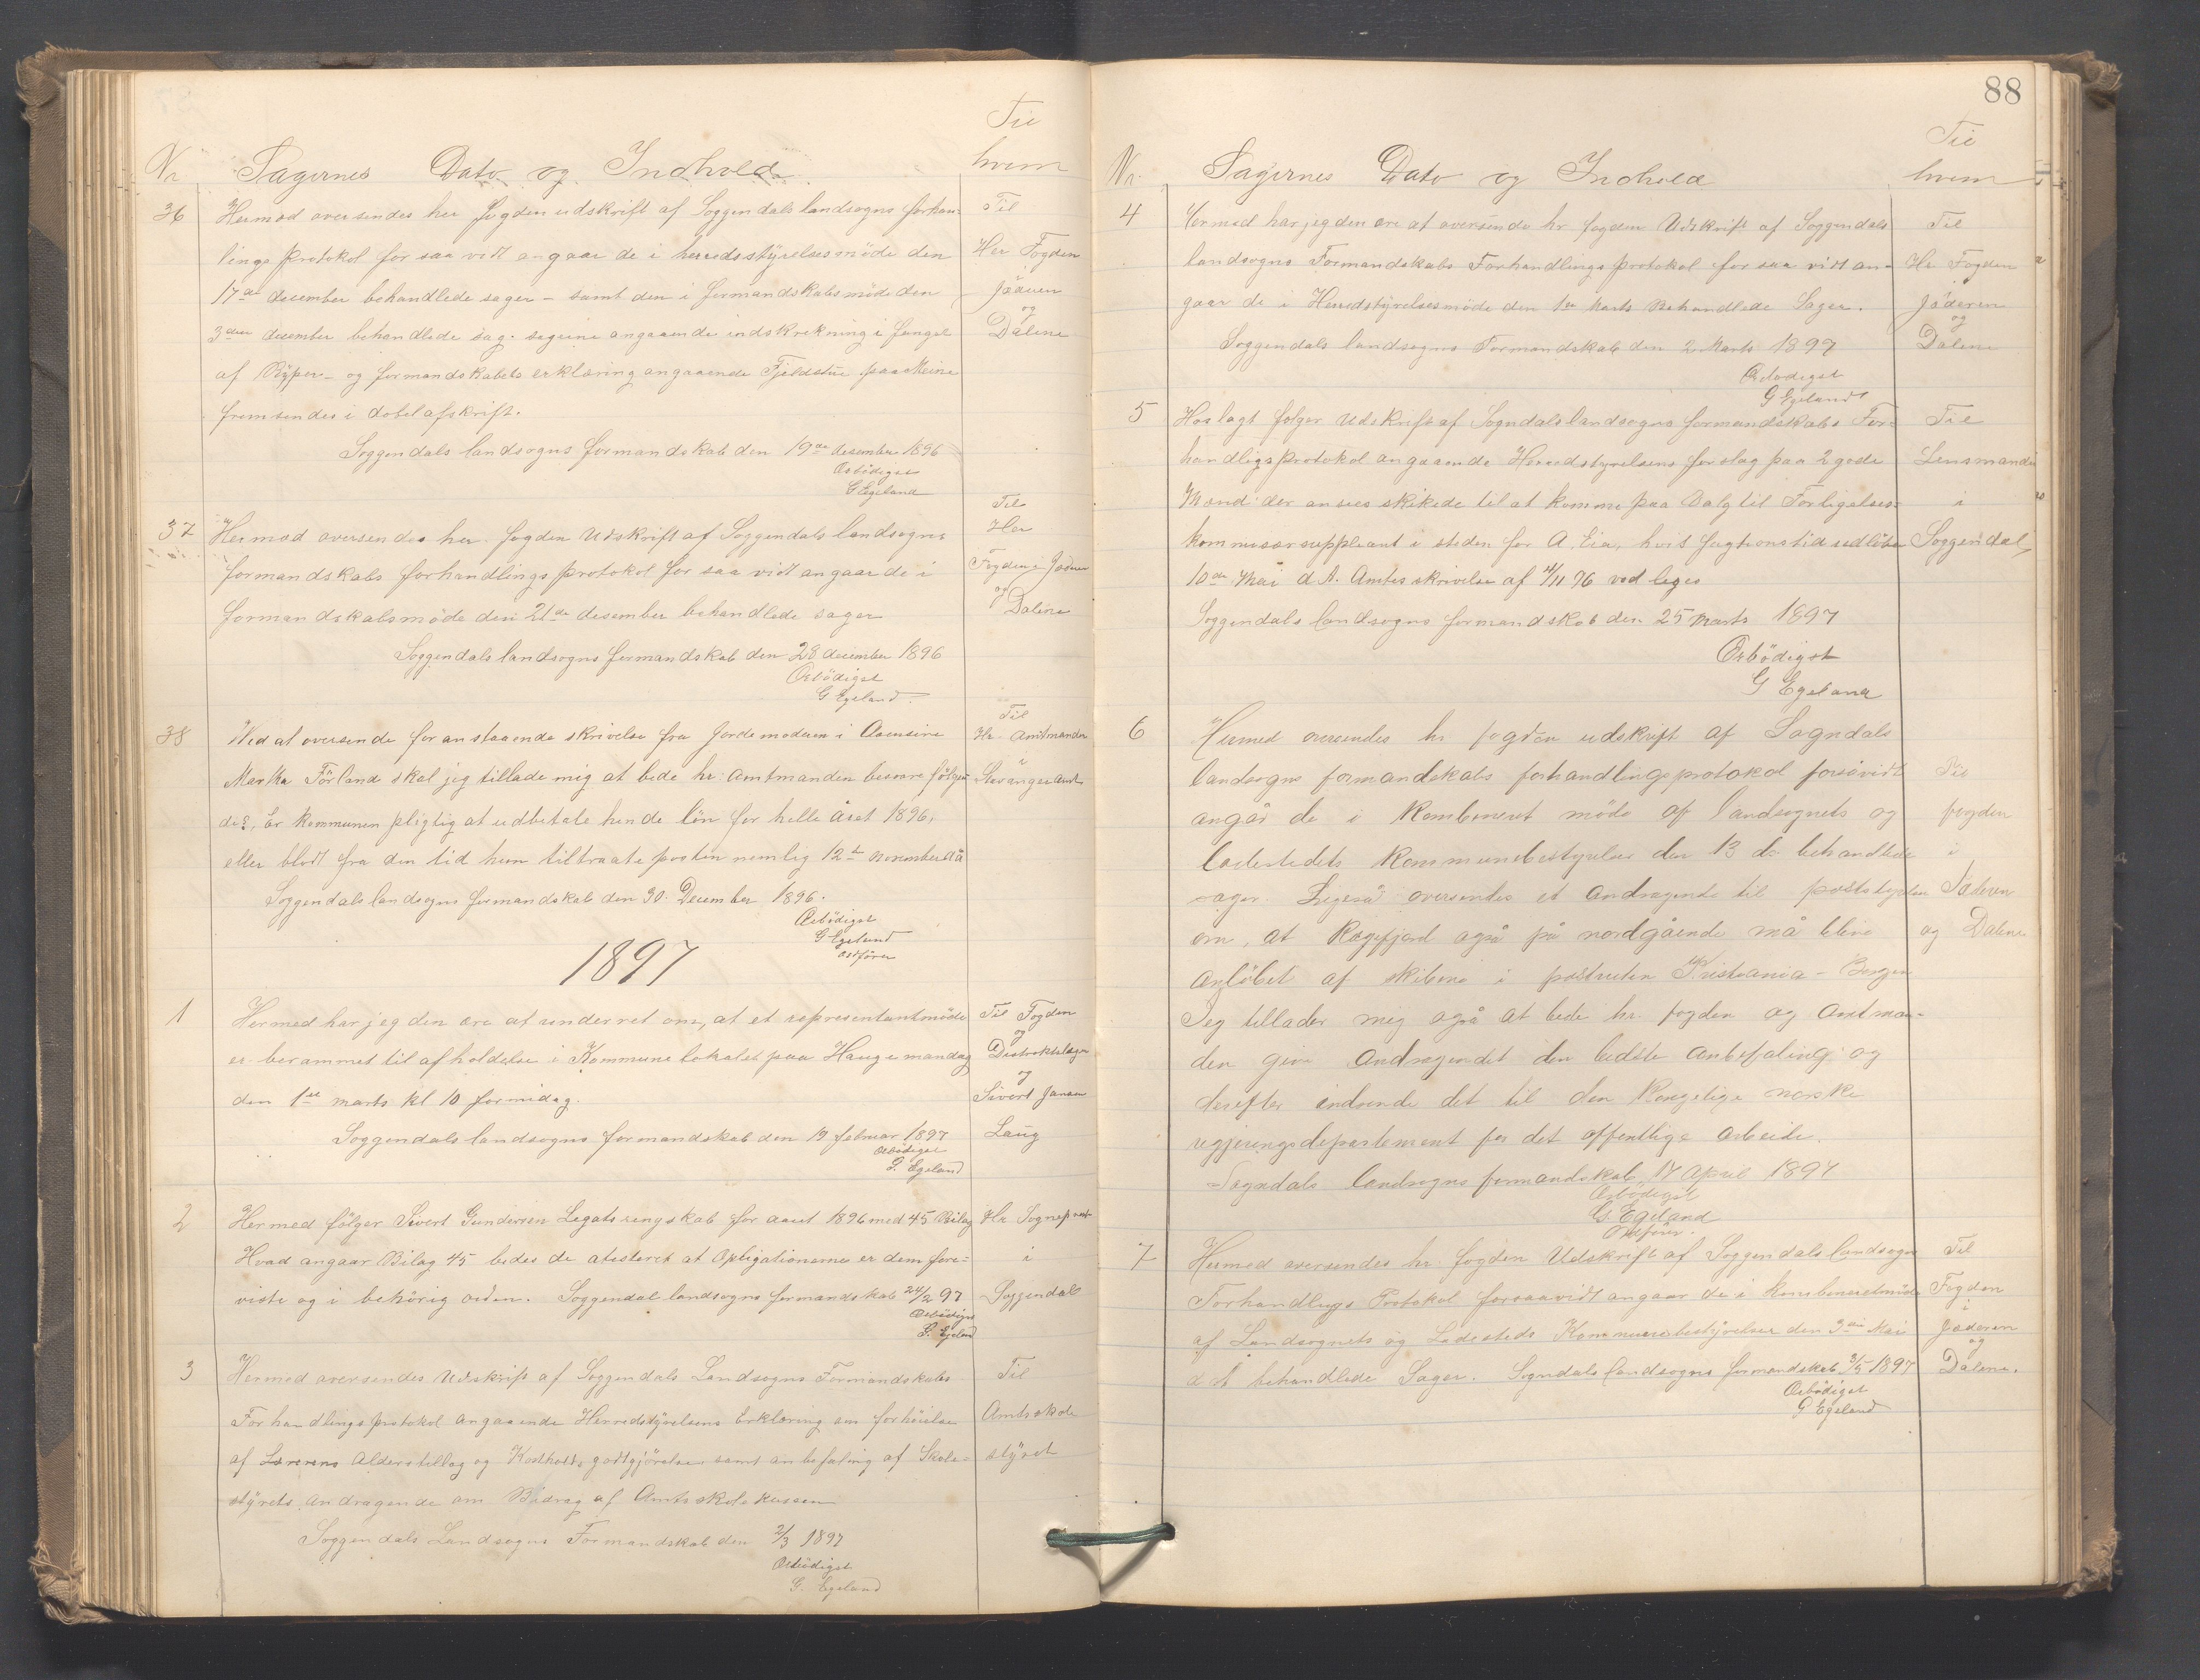 Til
Nr Sagernes Dato og Indhold hvem
36 Hermed oversendes her Fogden udskrift af Soggendals landsogns forhan- Til
lings protokol for saa vidt angaar de i herredsstyrelsesmöde den Her Fogden
17de desember behandlede sager – samt den i formandskabsmöde den Jäderen
og
3den desember behandlede sag. sagerne angaaende indskrekning i fangst Dalene
af Ryper – og formandskabets erklæring angaaende Fjeldstue paa Meine
fremsendes i dobelafskrift.
Soggendals landsogns formandskab den 19de desember 1896
Ærbödigst
G Egeland
37 Hermed oversendes her. fogden Udskrift af Soggendals landsogns Til Her
formandskabs forhandlings protokol for saa vidt angaar de i Fogden i Jäderen
og
formandskabsmöde den 21de desember behandlede sager Dalene
Soggendals landsogns formandskab den 28 december 1896
Ærbödigst
G Egeland
Til
38 Ved at oversende foranstaaende skrivelse fra Jordemoderen i Aaensire Hr. Amtmanden
i
Marka Förland skal jeg tillade mig at bede hr. Amtmanden besvare fölgen- Stavanger amt
de?, Er kommunen pligtig at udbetale hende lön for helle året 1896,
eller blodt fra den tid hun tiltraate posten nemlig 12te november då
Soggendals landsogns formandskab den 30. December 1896.
Ærbödigst
G Egeland
ordförer
1897
1 Hermed har jeg den ære at underret om, at et representantmöde Til Fogden
og
er berammet til afholdelse i Kommune lokalet paa Hauge mandag Distriktslægen
og
den 1ste marts kl 10 formidag. Sivert Jansen
Soggendals landsogns formandskab den 19 februar 1897 Laug
Ærbödigst
G. Egeland
2 Hermed fölger Sivert Gundersen Legats rengskab for aaret 1896 med 45 Bilag Hr. Sogneprest
Hvad angaar Bilag 45 bedes de atesteret at Opligationerne er dem fore- i
viste og i behörig orden. Soggendal landsogns formandskab 24/2 97 Soggendal
Ærbödigst
G. Egeland
3 Hermed oversendes Udskrift af Soggendals Landsogns Formandskabs Til
Forhandlings protokol angaaende Herredsstyrelsens Erklæring om forhöielse Amtsskole
af Lærerens Alderstillæg og Kostholds godtgjörelse samt anbefaling af Skole- styret
styrets andragende om Bidrag af Amtsskole kassen
Soggendals Landsogns Formandskab den 2/3 1897
Ærbödigst
G. Egeland
88
Til
Nr. Sagernes Dato og Indhold hvem
4 Hermed har jeg den ære at oversende hr fogden Udskrift af Soggendals Til
landsogns Formandskabs Forhandlings protokol for saa vidt an- Hr Fogden
gaar de i Herredstyrelsesmöde den 1ste Marts Behandlede Sager. Jäderen
og
Soggendals landsogns Formandskab den 2 Marts 1897 Dalene
Ærbødigst
G Egeland
5 Hoslagt fölger Udskrift af Sogndals landsogns formandskabs For- Til
handligs protokol angaaende Herredstyrelsens forslag paa 2 gode Lensmanden
Mænd der ansees skikede til at komme paa Valg til Forligelses- i
kommisærsuppleant i steden for A. Eia, hvis fugtionstid udlöber Soggendal
10de Mai d. A. Amtes skrivelse af 4/11 96 ved leges
Soggendals landsogns formandskab den 25 Marts 1897
Ærbödigst
G Egeland
6 Hermed oversendes hr fogden udskrift af Sogndals
landsogns formandskabs forhandlingsprotokol forsåvidt Til
angår de i Kombineret möde af landsognets og fogden
ladestedets Kommunebestyrelser den 13 ds. behandlede i
sager. Ligeså oversendes et andragende til poststyrelsen Jæderen
om, at Rægefjord også på nordgående må blive og Dalene
anlöbet af skibene i postruten Kristiania – Bergen
Jeg tillader mig også at bede hr. fogden og Amtman-
den give Andragendet den bedste anbefaling og
derefter indsende det til den Kongelige norske
regjeringsdepartement for det offentlige arbeide.
Sogndals landsogns formandskab, 17 April 1897
Ærbödigst
G. Egeland
Ordförer.
7 Hermed oversendes hr. fogden Udskrift af Soggendals landsogns Til
Forhandlings Protokol forsaavidt angaar de i kombineretmöde Fogden
i
af Landsognets og Ladesteds Kommunebestyrelser den 3die Mai Jæderen
og
d A behandlede Sager. Sogndals landsogns formandskab 3/5 1897 Dalene.
Ærbödigst
G Egeland